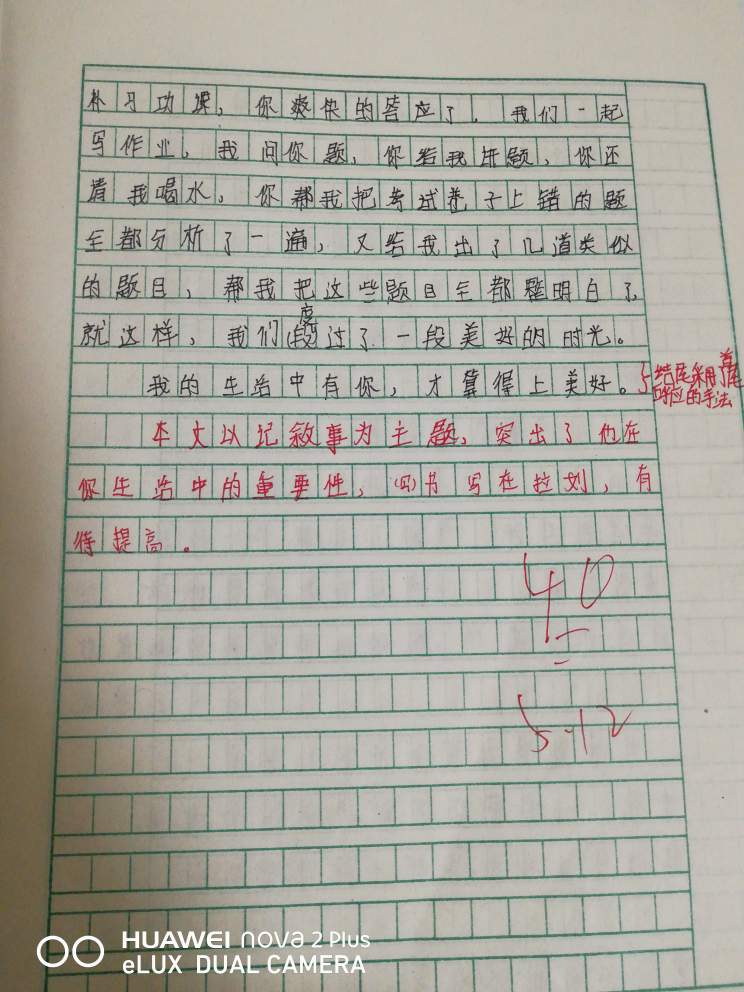 补习功课，你爽快的答应了。我们一起
写作业，我问你题，你给我讲题，你还
请我喝水，你帮我把考试卷子上错的题
全都分析了一遍，又给我出了几道类似
的题目，帮我把这些题目全都整明白了，
度
就这样，我们段过了一段美好的时光。
我的生活中有你，才算得上美好。
结尾采用了首尾
呼应的手法
本文以记叙事为主题，突出了他在
你生活中的重要性，(写)书写在拉划，有
待提高。
40
5.12
HUAWEI nova 2 Plus
eLUX DUAL CAMERA